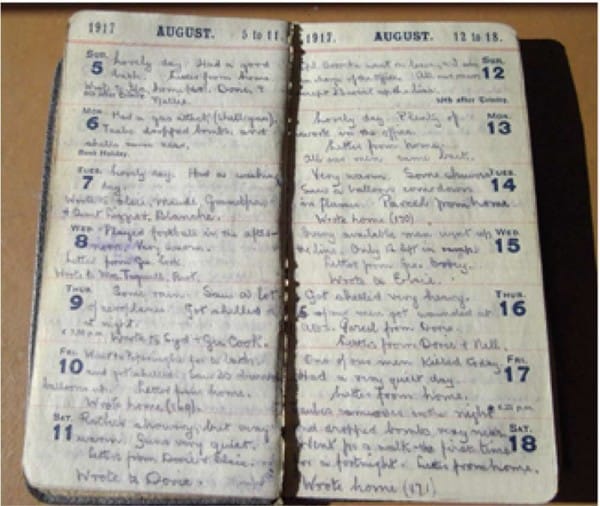 1917 AUGUST. 5 to 11.
SUN. 5 Lovely day. Had a good
bath. Letter from home
Wrote to home Dorie, &
Nellie.
MON. 6 Had a gas attack (shell gas).
Taube dropped bombs and
shells
Bank Holiday.
TUES. 7 Lovely day. Had a washing
day.
Wrote to Elsie, Maude, Grandpa &
Aunt Blanche.
WED. 8 Played football in the after-
noon. Very warm.
Letter from Geo. Cook.
Wrote to Mrs
THUR. 9 Some rain. Saw a lot
of aeroplanes. Got shelled
at night.
Wrote to Syd & Geo Cook.
FRI. 10 Went to for a bath
and got shelled. Saw 23
balloons up. Letter from home.
Wrote home (169).
SAT. 11 Rather showery, but very
warm. Guns very quiet.
Letter from Dorie & Elsie.
Wrote to Dorie.
1917. AUGUST. 12 to 18.
went on leave, & I
in charge of the office. All our men
up the line.
SUN. 12
10th after Trinity.
Lovely day. Plenty of MON. 13
work in the office.
Letter from home.
All our men came back.
Very warm. Some TUES. 14
Saw a balloon come down
in flames. Parcel from home.
Wrote home (170)
Every available man went up WED. 15
the line. Only 12 left in camp.
Letter from Geo.
Wrote to Elsie.
Got shelled very heavy. THUR. 16
5 of our men got wounded at
Parcel from Dorie.
Letters from Dorie & Nell.
One of our men killed today. FRI. 17
Had a very quiet day.
Letter from home.
came over in the night
and dropped bombs very near. SAT. 18
Went for a walk the first time
for a fortnight. Letter from home.
Wrote home (171)